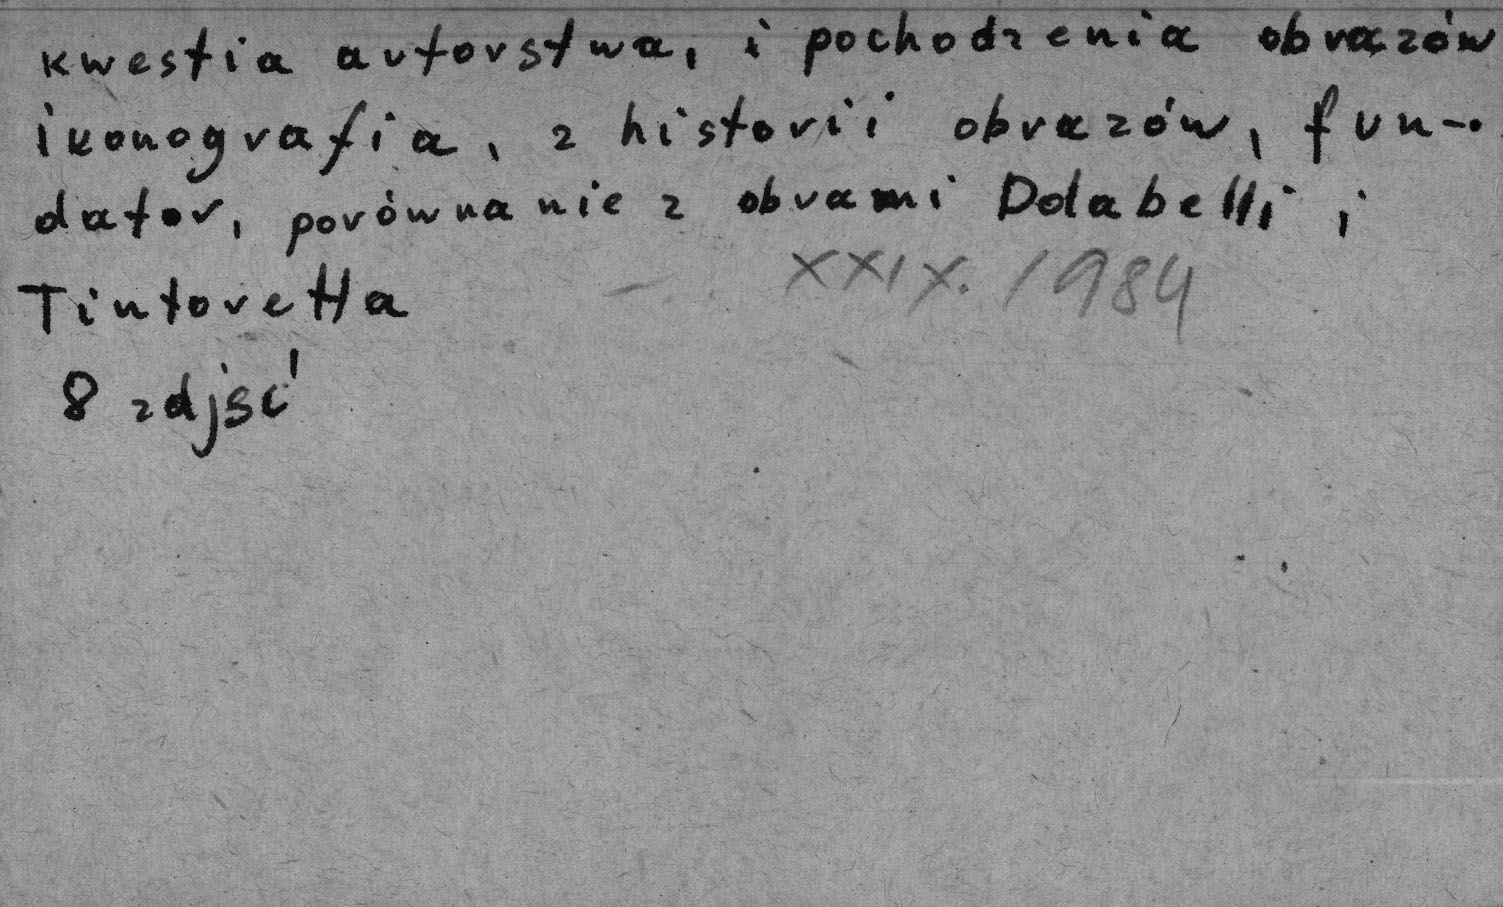 kwestia autorstwa, i pochodzenia obrazów
ikonografia, z historii obrazów, fun-
dator, porównanie z obrami Dolabelli i
XXIX. 1984
Tintoretta
8 zdjść